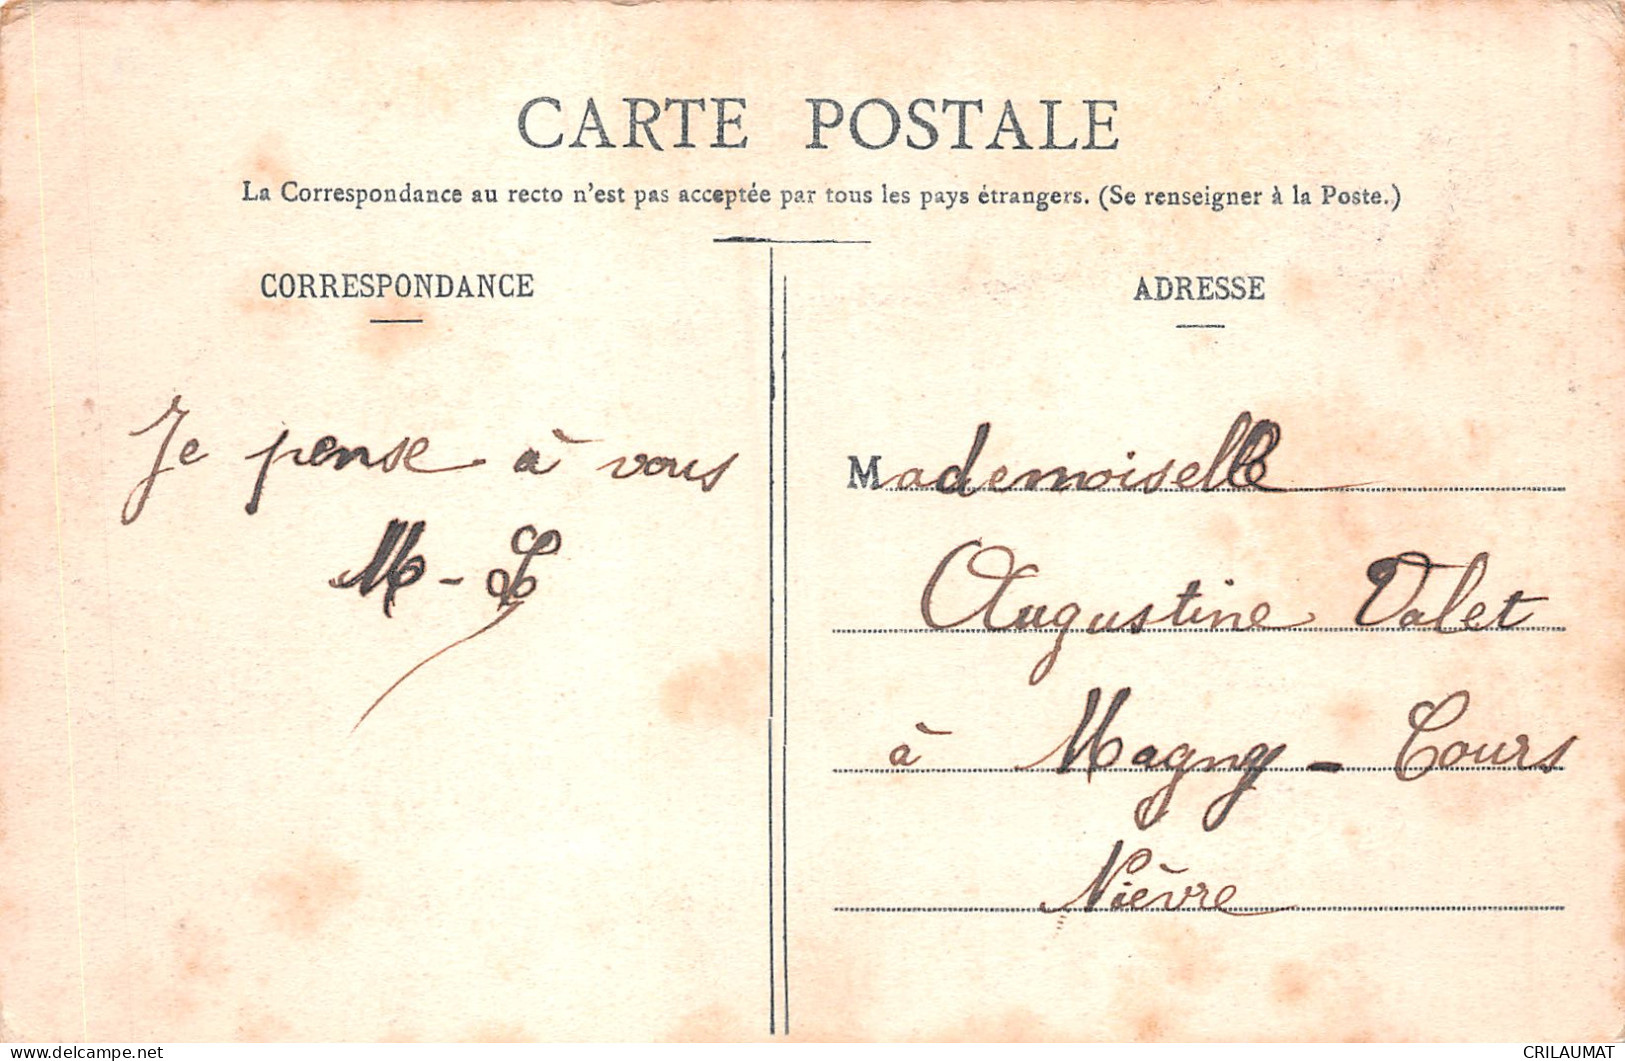 CARTE POSTALE
La Correspondance au recto n'est pas acceptée par tous les pays étrangers. (Se renseigner à la Poste.)
CORRESPONDANCE
Je pense à vous
M-L
ADRESSE
Mademoiselle
Augustine Valet
à Magny-Cours
Nièvre
delcampe.net
CRILAUMAT